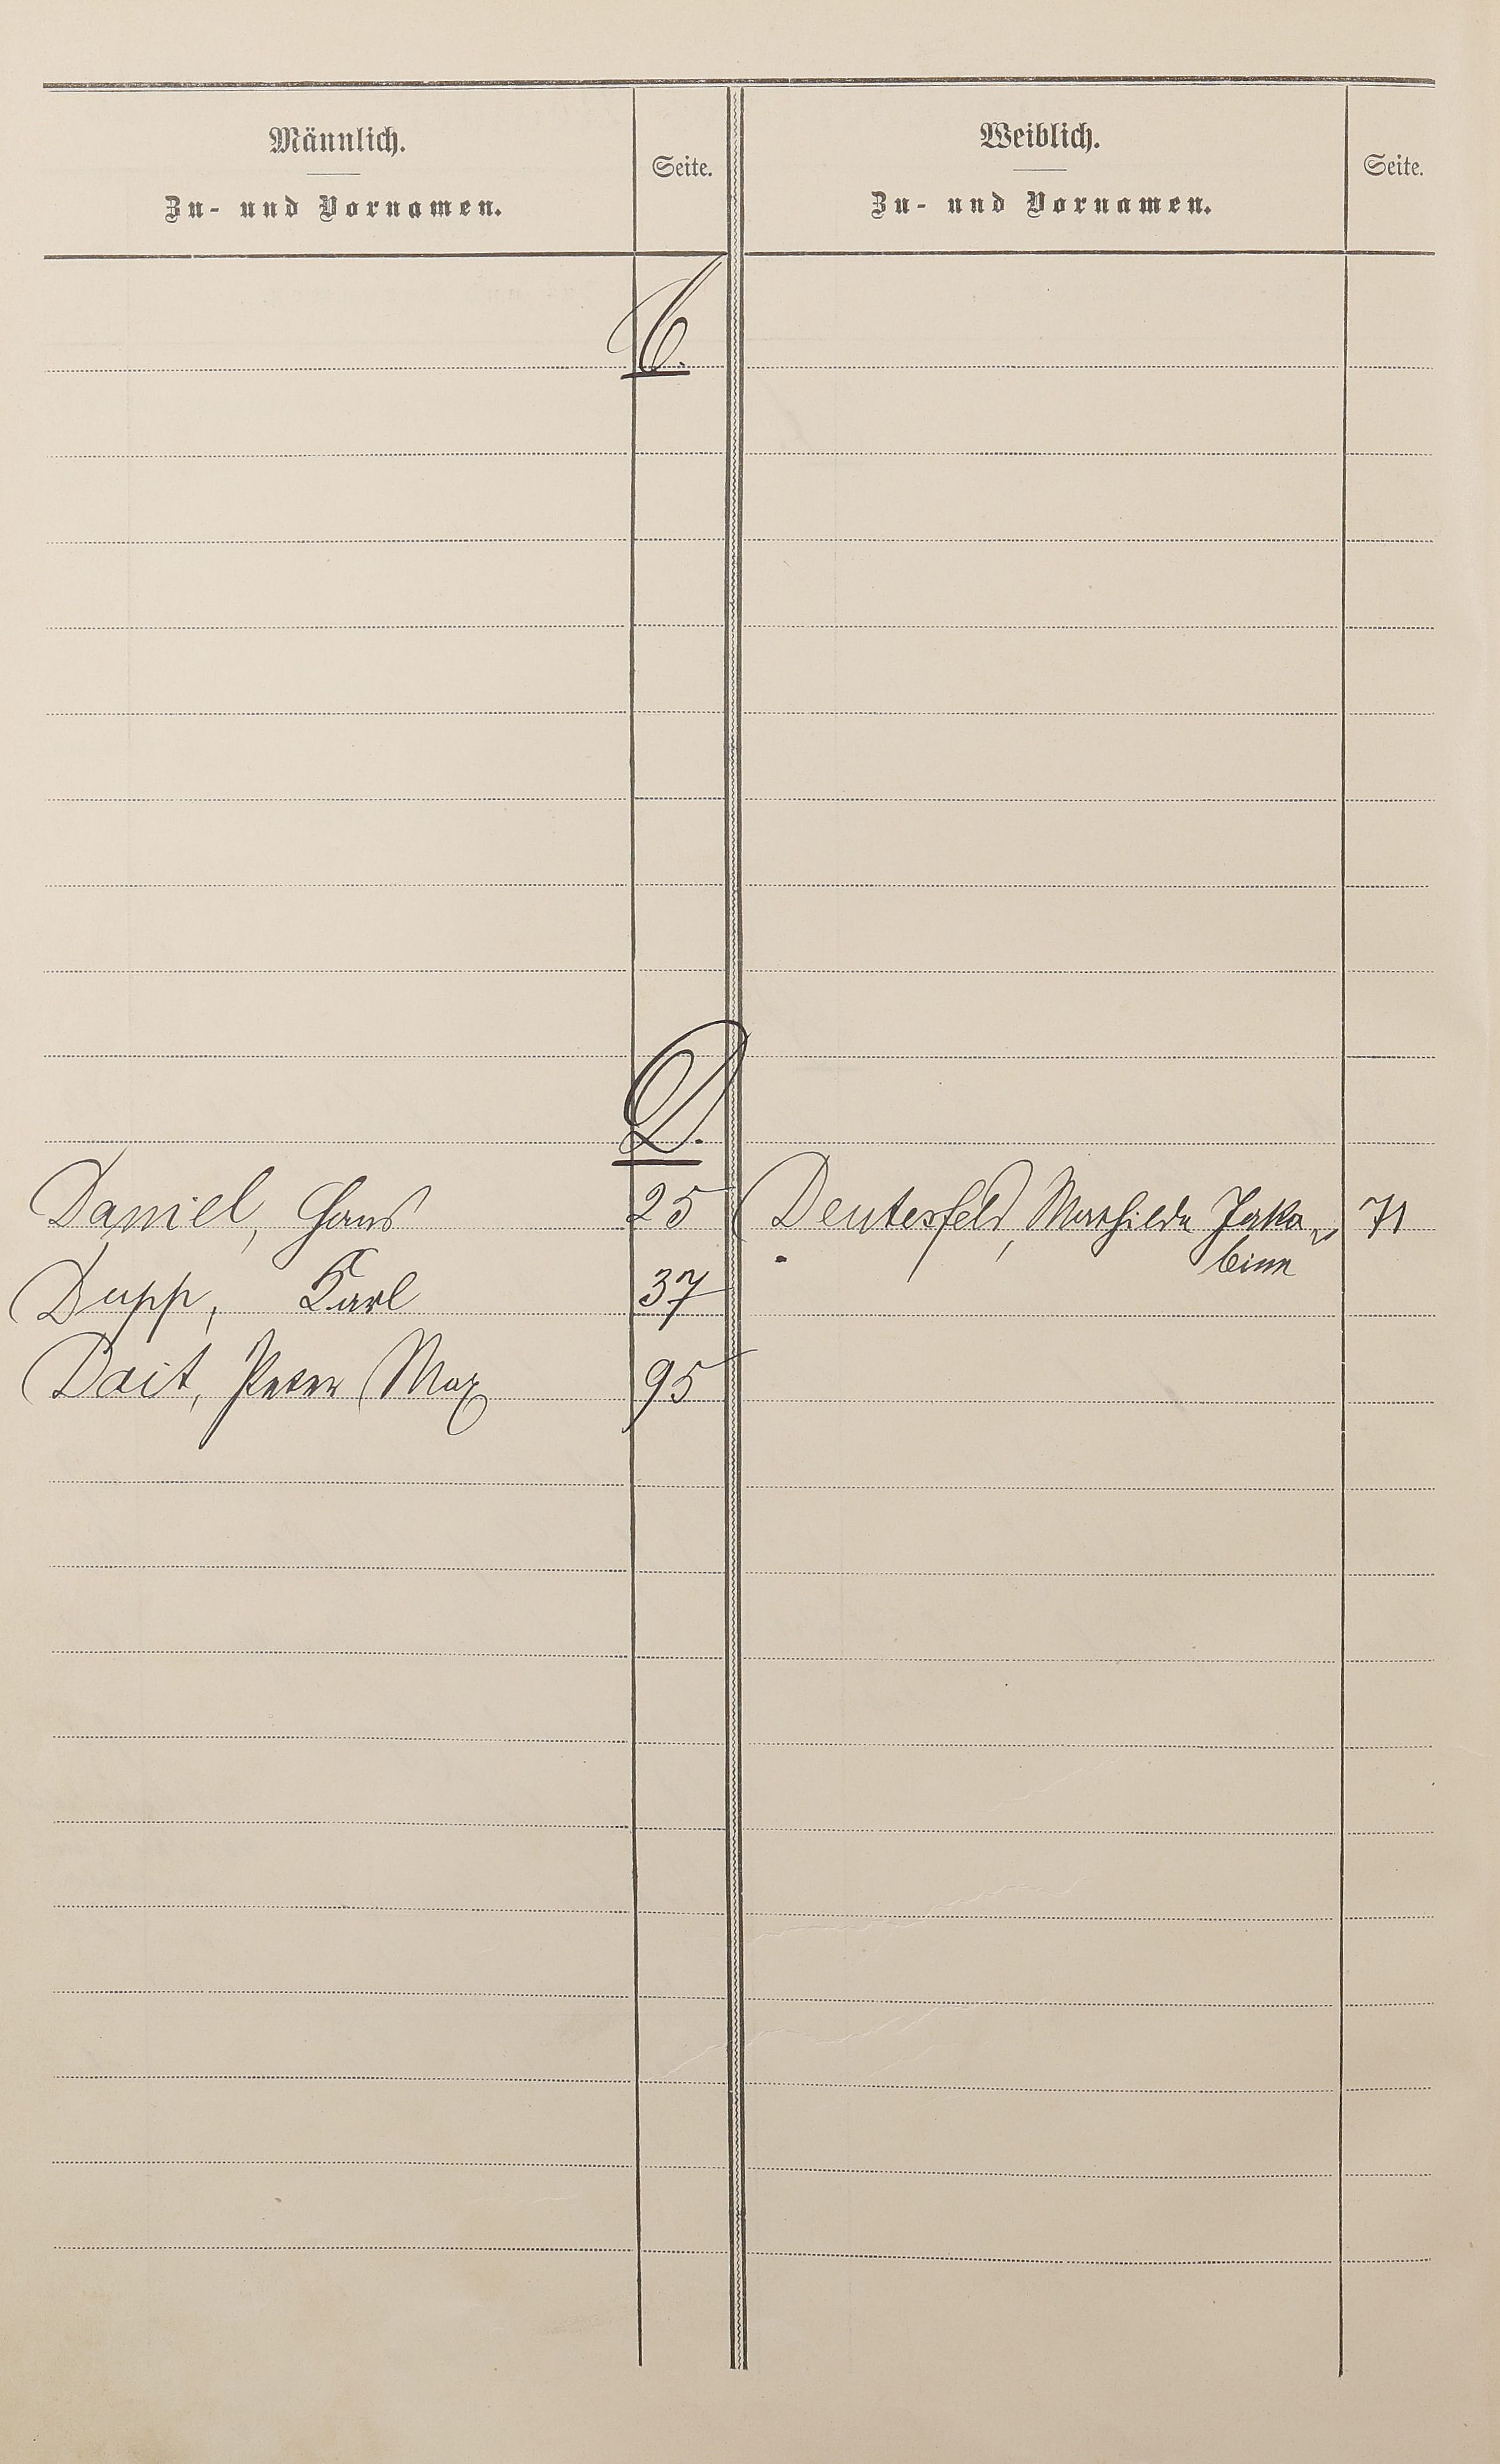 Männlich.
Zu- und Vornamen.
Seite.
Weiblich.
Zu- und Vornamen.
Seite.
C.
D.
Daniel, Hans 25
Deutesfeld, Mathilde Jako- 71
bine
Dupp, Karl 37
Doit, Peter Max 95